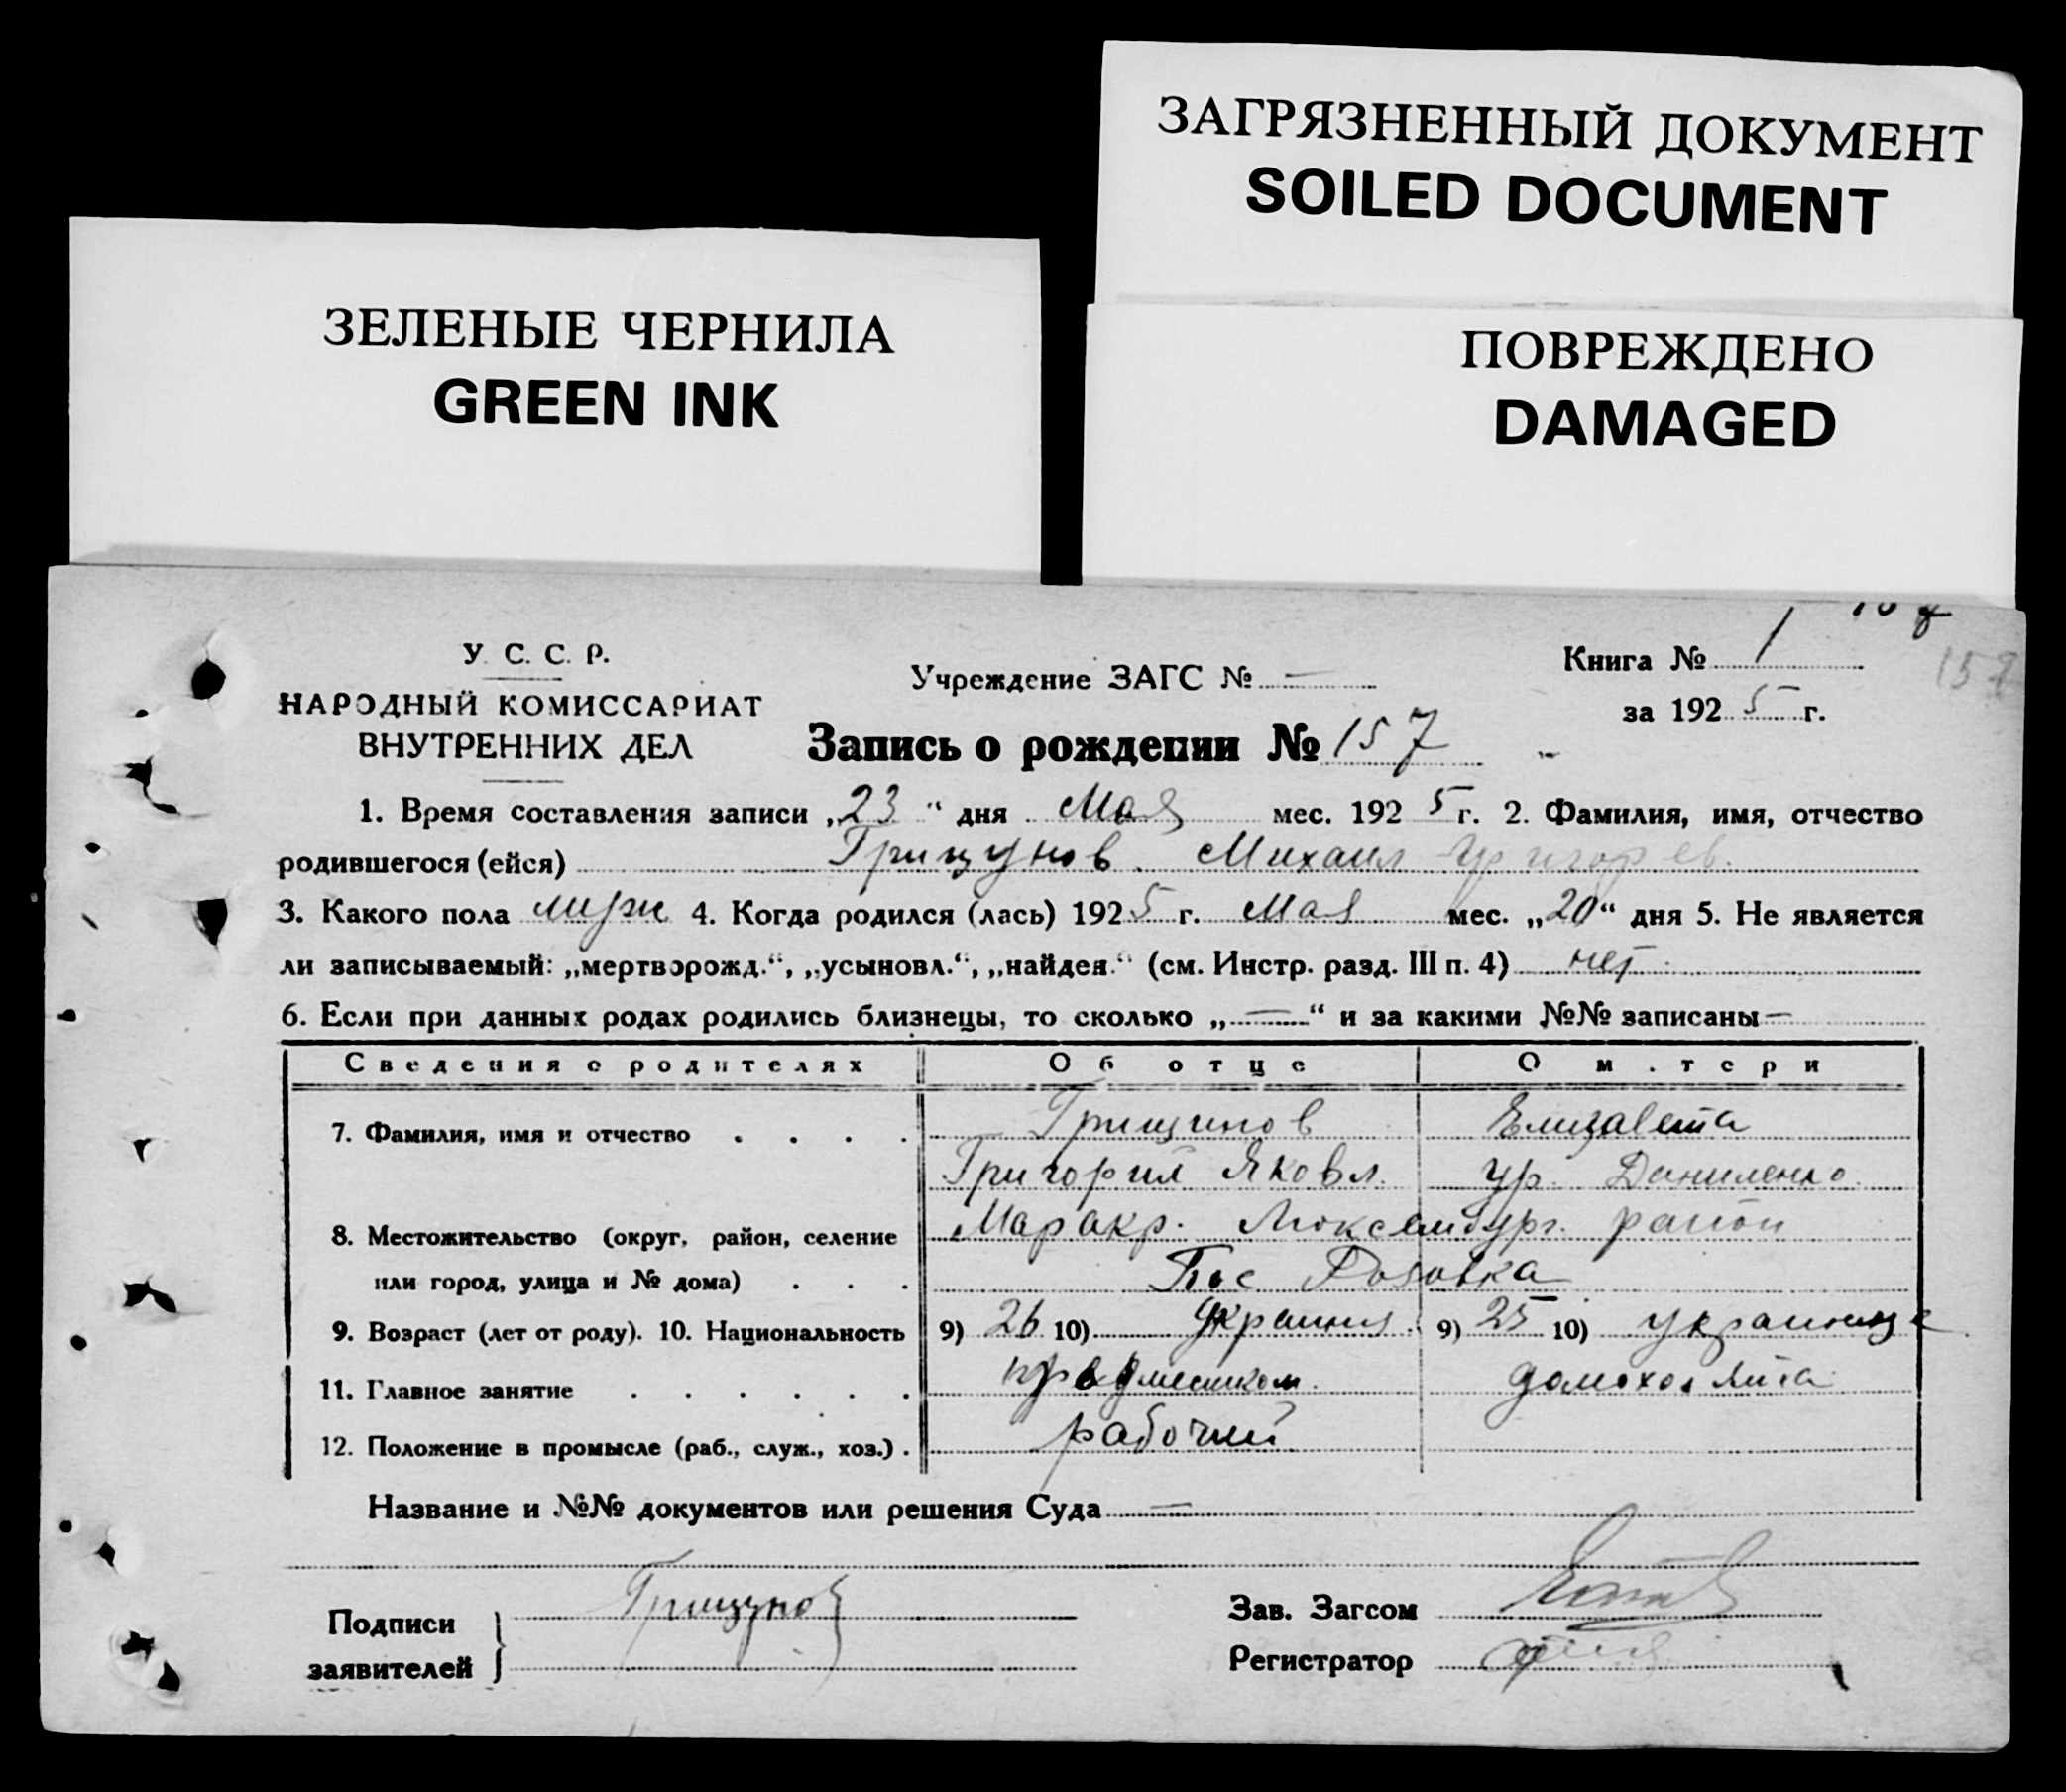 ЗАГРЯЗНЕННЫЙ ДОКУМЕНТ
SOILED DOCUMENT
ЗЕЛЕНЫЕ ЧЕРНИЛА
GREEN INK
ПОВРЕЖДЕНО
DAMAGED
У. С. С. Р.
НАРОДНЫЙ КОМИССАРИАТ
ВНУТРЕННИХ ДЕЛ
Учреждение ЗАГС № —
Книга № 1
за 1925 г.
Запись о рождении № 157
1. Время составления записи „23“ дня Мая мес. 1925 г. 2. Фамилия, имя, отчество
родившегося (ейся) Грищунов Михаил Григорьев.
3. Какого пола муж 4. Когда родился (лась) 1925 г. Мая мес. „20“ дня 5. Не является
ли записываемый: „мертворожд.“, „усыновл.“, „найден.“ (см. Инстр. разд. III п. 4) нет
6. Если при данных родах родились близнецы, то сколько „—“ и за какими №№ записаны —
Сведения о родителях Об отце О м.тери
7. Фамилия, имя и отчество . . . . Грищунов Елизавета
Григорий Яковл. ур. Даниленко
8. Местожительство (округ, район, селение Мар окр. Люксембург. район
или город, улица и № дома) . . . Пос Розовка
9. Возраст (лет от роду). 10. Национальность 9) 26 10) 9) 25 10) украинка
11. Главное занятие . . . . . . домохозяйка
12. Положение в промысле (раб., служ., хоз.) . рабочий
Название и №№ документов или решения Суда —
Подписи
заявителей
Грищунов
Зав. Загсом
Регистратор